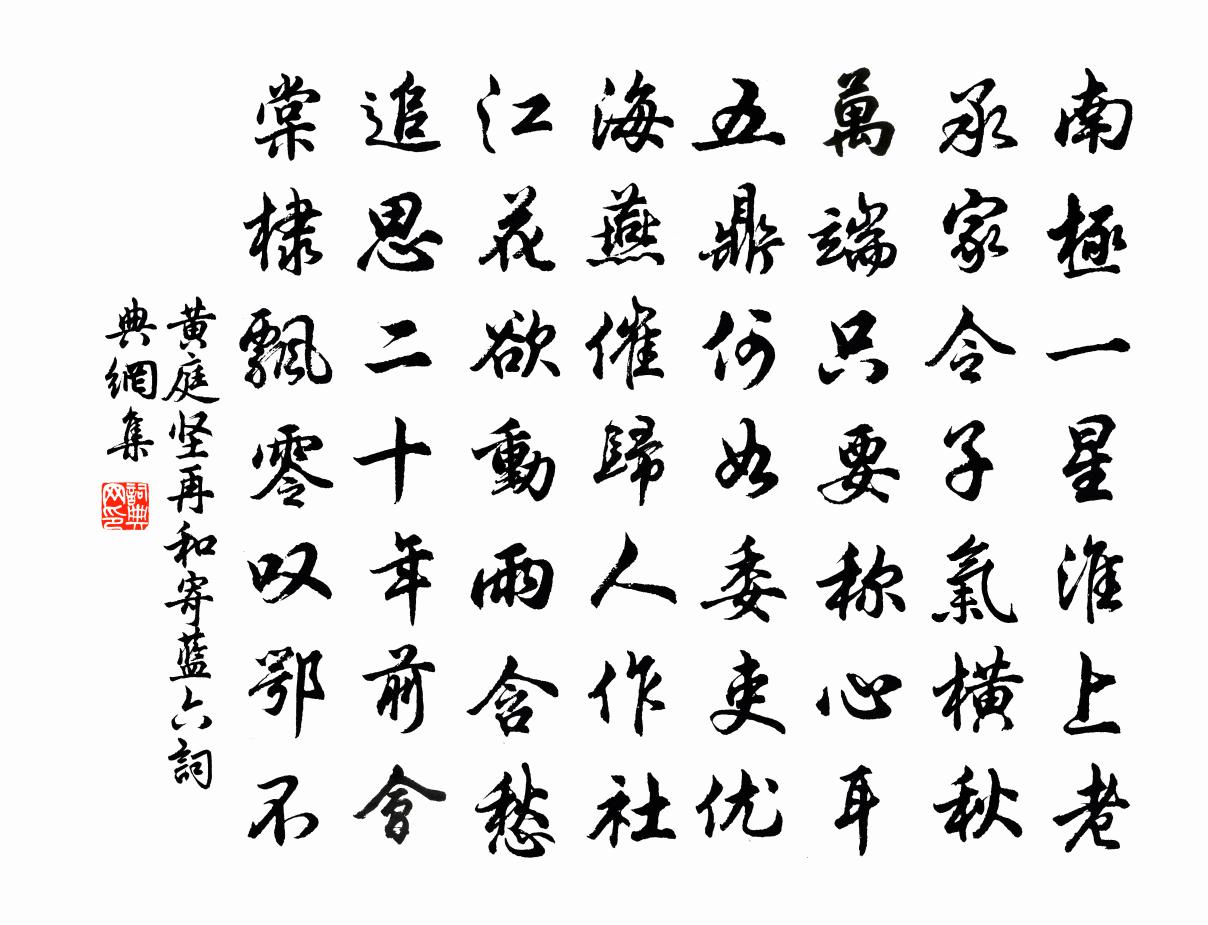 南極一星淮上老
承家令子氣橫秋
萬端只要称心耳
五鼎何如委吏优
海燕催歸人作社
江花欲動雨含愁
追思二十年前會
棠棣飄零叹鄂不
黄庭坚再和寄藍六詞
典網集
詞典
网印